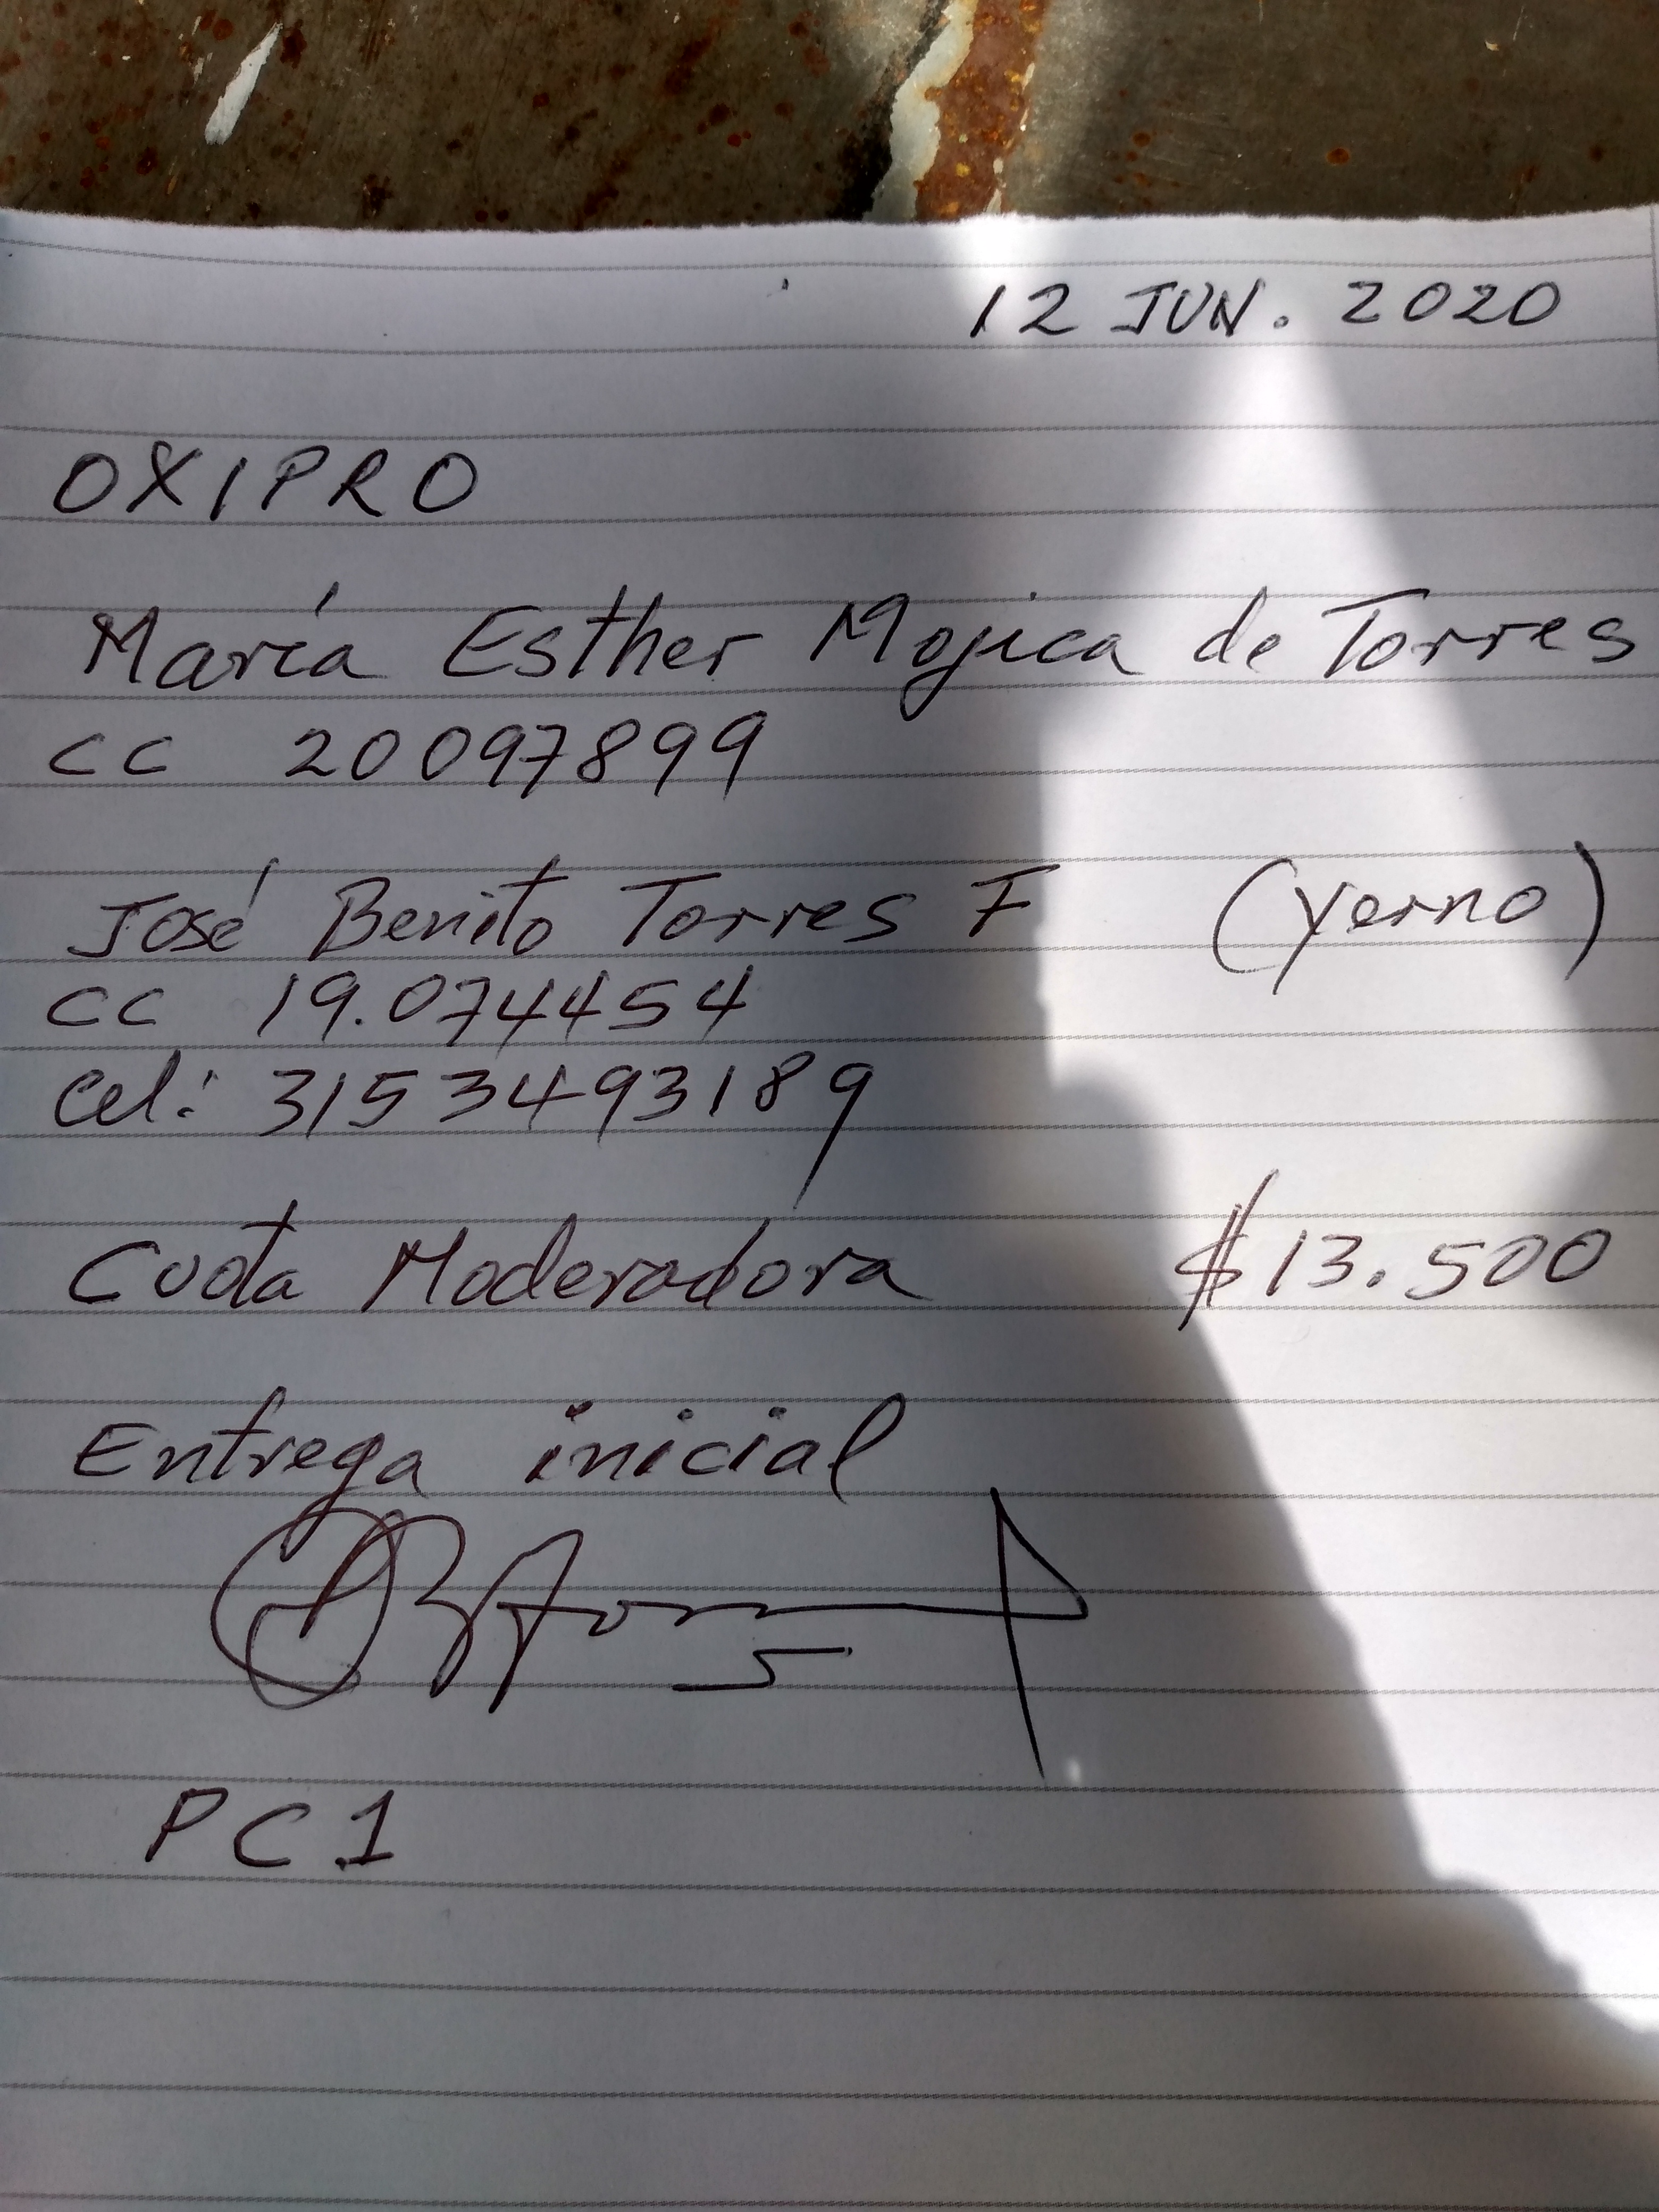 12 JUN. 2020
OXIPRO
María Esther Mojica de Torres
CC 20097899
José Benito Torres F (Yerno)
CC 19.074454
Cel: 3153493189
Cuota Moderadora $13.500
Entrega inicial
PC1